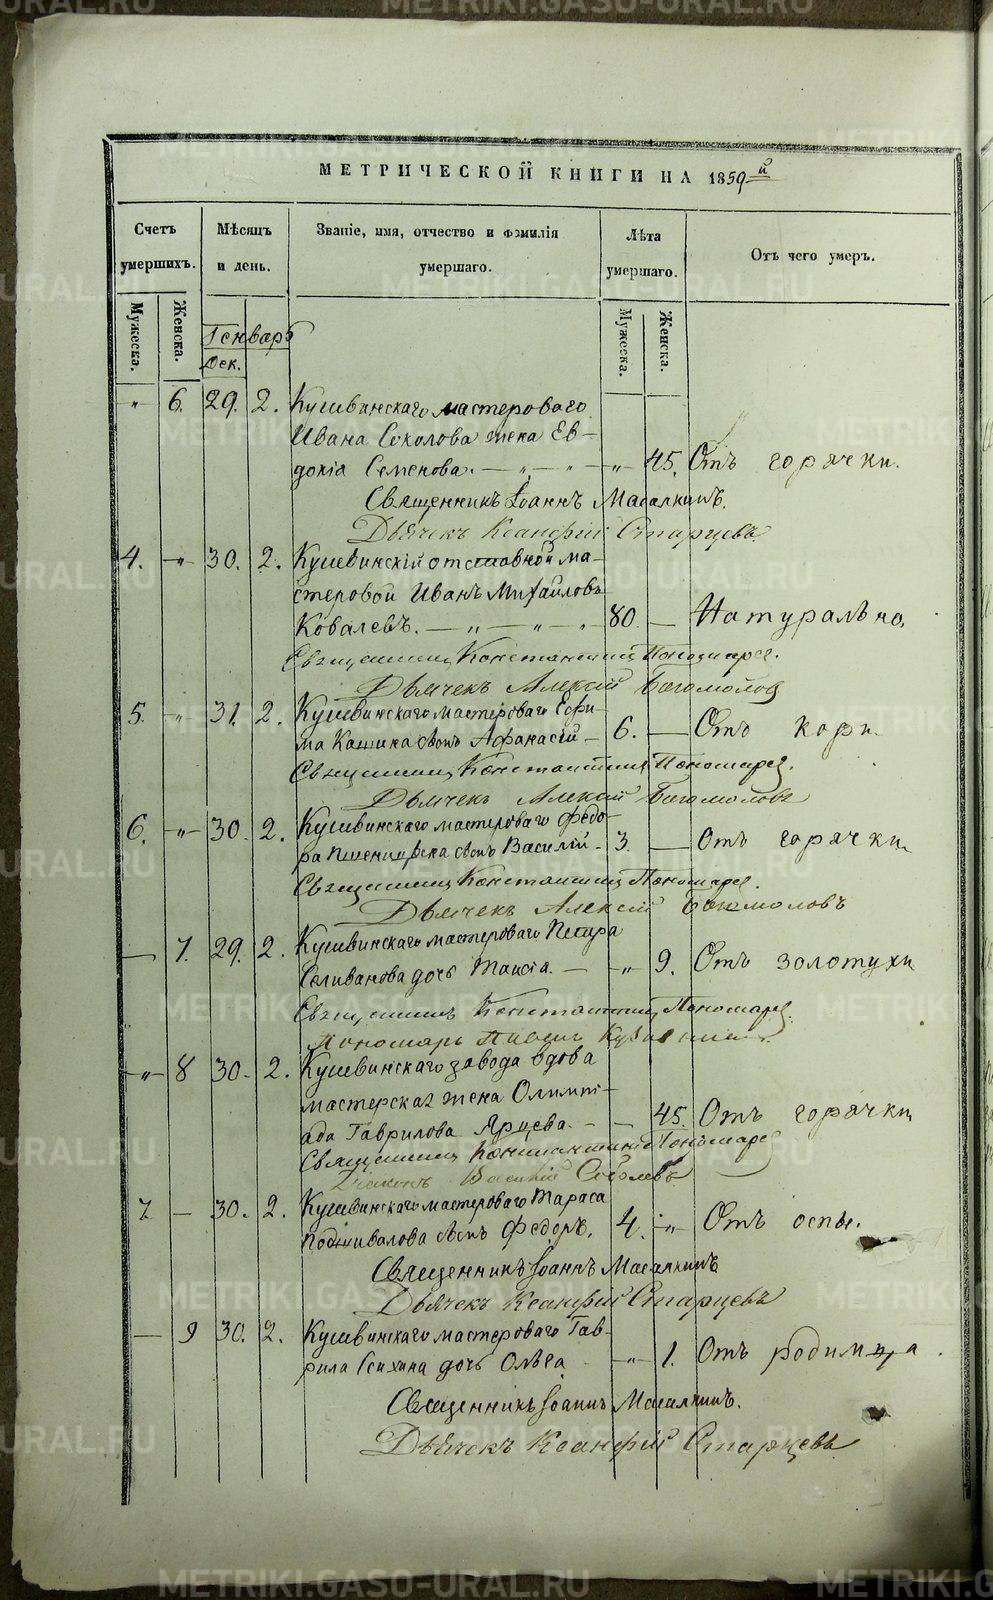 МЕТРИЧЕСКОЙ КНИГИ НА 1859й
Счетъ умершихъ.
Мужеска.
Женска.
Мѣсяцъ и день.
Званіе, имя, отчество и фамилія умершаго.
Лѣта умершаго.
Мужеска.
Женска.
Отъ чего умеръ.
Генварь
Дек.
" 6. 29. 2. Кушвинскаго мастероваго
Ивана Соколова жена Ев-
докія Семенова. — " — " — " 45. Отъ горячки.
Священникъ Іоаннъ Масалкинъ.
Дьячекъ Ксанфій Старцевъ
4. — " — 30. 2. Кушвинскій отставной ма-
стеровой Иванъ Михайловъ
Ковалевъ. — " — " — " 80. — Натурально.
Священникъ Константинъ Пономаревъ.
Дьячекъ Алексій Богомолов
5. " 31. 2. Кушвинскаго мастероваго Ефи-
ма Кашина сынъ Афанасій — 6. — Отъ кори.
Священникъ Константинъ Пономарев.
Дьячекъ Алексій Богомоловъ
6. — " — 30. 2. Кушвинскаго мастероваго Федо-
ра сынъ Василій. 3. — Отъ горячки
Священникъ Константинъ Пономарев.
Дьячекъ Алексій Богомоловъ
— 7. 29. 2. Кушвинскаго мастероваго Петра
Селиванова дочь Таисія. — — " — 9. Отъ золотухи
Священникъ Константинъ Пономарев.
Пономарь Павелъ
— " — 8 30. 2. Кушвинскаго завода вдова
мастерская жена Олимпі-
ада Гаврилова Ярцева. — — 45. Отъ горячки
Священникъ Константинъ Пономарев
Василій Соболевъ
7 — 30. 2. Кушвинскаго мастероваго Тараса
Подшивалова сынъ Федоръ. 4. — " — Отъ оспы.
Священникъ Іоаннъ Масалкинъ
Дьячекъ Ксанфій Старцевъ
— 9 30. 2. Кушвинскаго мастероваго Гав-
рила дочь Ольга — " — 1. Отъ родимца.
Священникъ Іоаннъ Масалкинъ.
Дьячекъ Ксанфій Старцевъ
METRIKI.GASO-URAL.RU